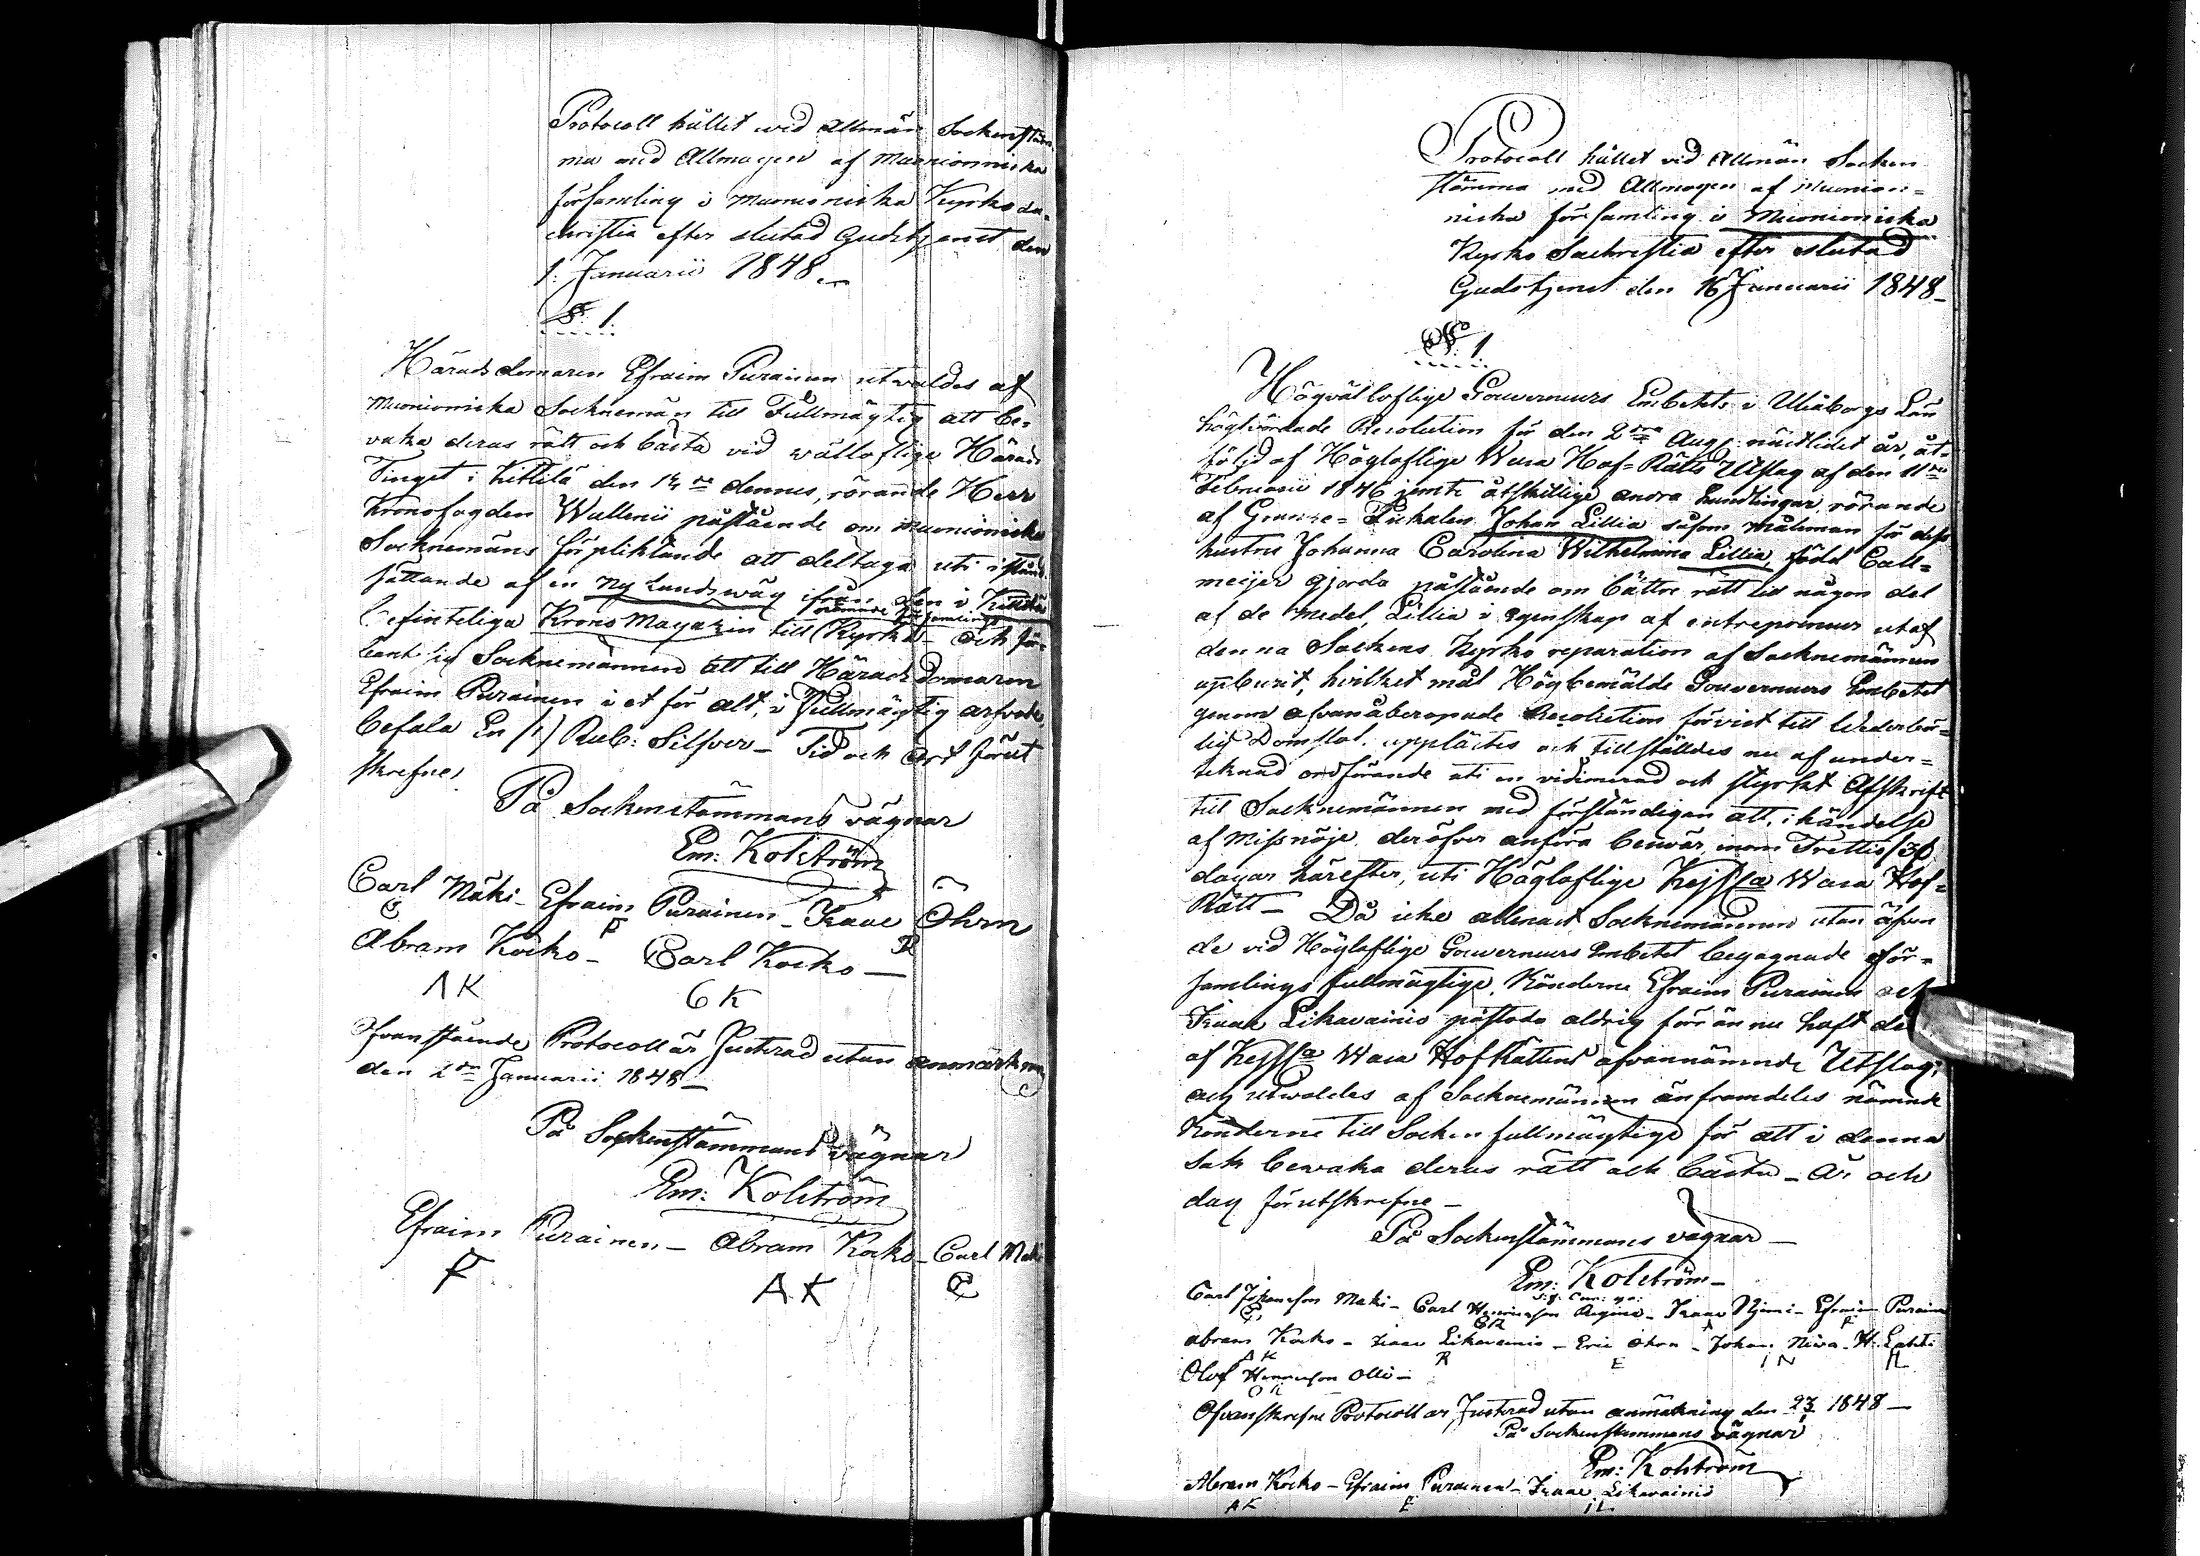 Protocoll hållet wid allmän Sockenstäm-
ma med Allmogen af Muonionniska
församling i Muonioniska Kyrko sa-
christia efter slutad Gudstjenst den
1. Januarii 1848.
§ 1.
Häradsdomaren Efraim Purainen utwaldes af
Muonioniska Socknemän till Fullmägtig att be-
vaka deras rätt och bästa vid wälloflige Härads
Tinget i Kittilä den 14de dennes, rörande Herr
Kronofogden Wallenii påstående om Muonioniska
Socknemäns förpliktande att deltaga uti istånd-
sättande af en ny Landswäg ifrån den i Kittilä
befinteliga Krono Magazin till Kyrka - och för-
bant sig Socknemännen att till Härads Domaren
Efraim Purainen i et för alt, i Fullmägtig arfvode,
befala En /1/ Rub: Silfver - Tid och Ort förut
skrefne.
På Sockenstämmans vägnar
Em: Kolström
Carl Mäki - Efraim Purainen - Isaac Öhrn
Abram Kocko - Carl Kocko -
AK CK
Ofvanstående Protocoll är Justerad utan anmärkn
den 2dn Januarii 1848 -
På Sockenstämmans vägnar
Em: Kolström
Efraim Purainen - Abram Kocko - Carl Mäki
P AK C
Protocoll hållet vid Allmän Socken
stämma med Allmogen af Muonion-
niska församling i Muonioniska
Kyrko Sachristia efter slutad
Gudstjenst den 16 Januarii 1848 -
§ 1.
Högvälloflige Gouverneurs Embetets i Uleåborgs Län
högtvördade Resolution för den 2dra Aug: nästlidet år, åt-
följd af Högloflige Wasa Hof-Rätts Utslag af den 11te
Februarii 1846 jemte åtskillige andra handlingar, rörande
af Gränse-Fiskalen Johan Lillia såsom målsman för dess
hustru Johanna Carolina Wilhelmina Lillia, född Call-
meijer gjorda påstående om bättre rätt till någon del
af de medel, Lillia i egenskap af entreprenneur utaf
denna Sockens Kyrko reparation af Socknemännen
uppburit, hvilket mål Högbemälde Gouverneurs Embetet
genom ofvanåberopade Resolution förvist till Wederbör-
lig Domstol, upplästes och tillställdes nu af under-
teknad ordförande uti en vidimerad och styrkt Afskrift
till Socknemännen med förständigan att, i händelse
af missnöje deröfver anföra besvär inom Trettio /30/
dagar härefter, uti Högloflige Kejserliga Wasa Hof-
Rätt - Då icke allenast Socknemännen utan äfven
de vid Högloflige Gouverneurs Embetet begagnade för-
samlings fullmägtige, Bönderne Efraim Purainen och
Isaac Likavainio påstodo aldrig förr än nu haft del
af Kejserliga Wasa HofRättens ofvannämnde Utslag,
och utwaldes af Socknemännen änframdeles nämnde
Bönderne till Socken fullmägtige för att i denna
sak bevaka deras rätt och bästa - År och
dag förutskrefne -
På Sockenstämmans vägnar -
Em: Kolström -
Carl Johansson Mäki - Carl Henricsson Regina - Isaac Niemi - Efraim Purainen
Abram Kocko - Isaac Likavainio - Eric Öhrn - Johan Niva - H: Lahti
AK R E IN HL
Olof Henricsson Olli -
Ofvanskrefne Protocoll är Justerad utan anmärkning den 23 1848 -
På Sockenstämmans vägnar
Em: Kolström
Abram Kocko - Efraim Purainen - Isaac Likavainio
AK E IL